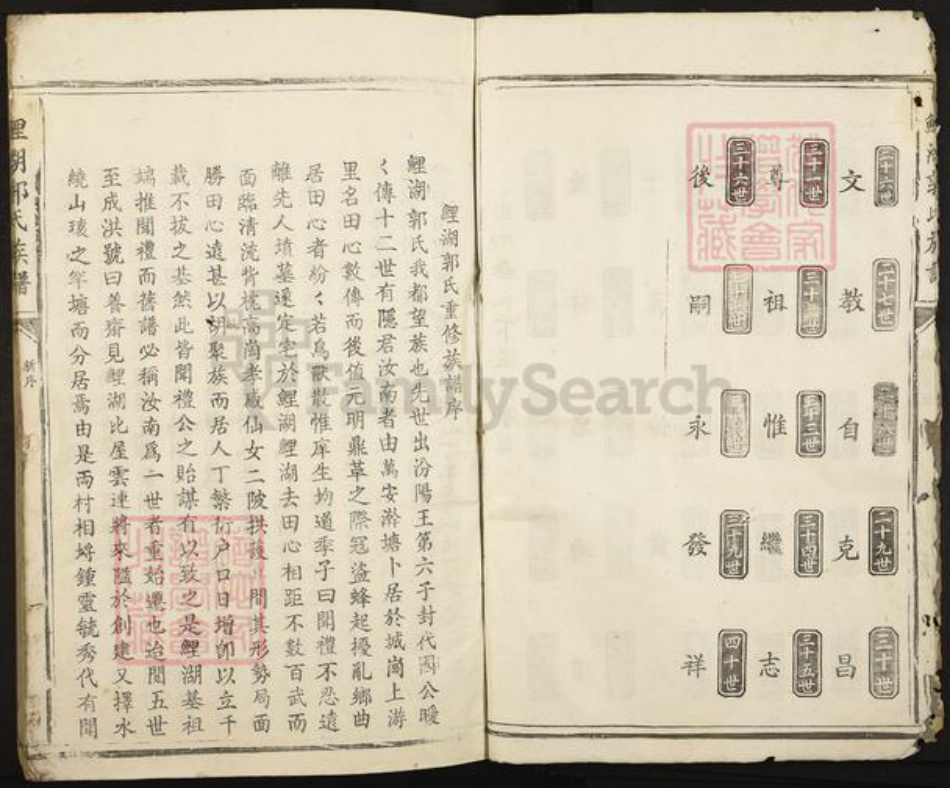 鯉湖郭氏族譜
二十六世 二十七世 二十九世 三十世
文 教 自 克 昌
三十一世 三十二世 三十三世 三十四世 三十五世
尊 祖 惟 繼 志
三十六世 三十九世 四十世
後 嗣 永 發 祥
鯉湖郭氏重修族譜序
鯉湖郭氏我都望族也先世出汾陽王第六子封代國公曖
々傳十二世有隱君汝南者由萬安瀚塘卜居於城崗上游
里名田心數傳而後值元明鼎革之際冠盜蜂起擾亂鄉曲
居田心者紛々若鳥獸散惟庠生均道季子曰聞禮不忍遠
離先人墳墓遂定宅於鯉湖鯉湖去田心相距不數百武而
面臨清流背枕高崗孝感仙女二陂拱護其間其形勢局面
勝田心遠甚以胡聚族而居人丁繁衍户口日增卽以立千
載不拔之基然此皆聞禮公之貽謀有以致之是鯉湖基祖
端推聞禮而舊譜必稱汝南爲一世者重始遷也迨閱五世
至成洪號曰養齋見鯉湖比屋雲連將來隘於創建又擇水
繞山環之竿塘而分居焉由是兩村相埒鍾靈毓秀代有聞
鯉湖郭氏族譜
新序
FamilySearch